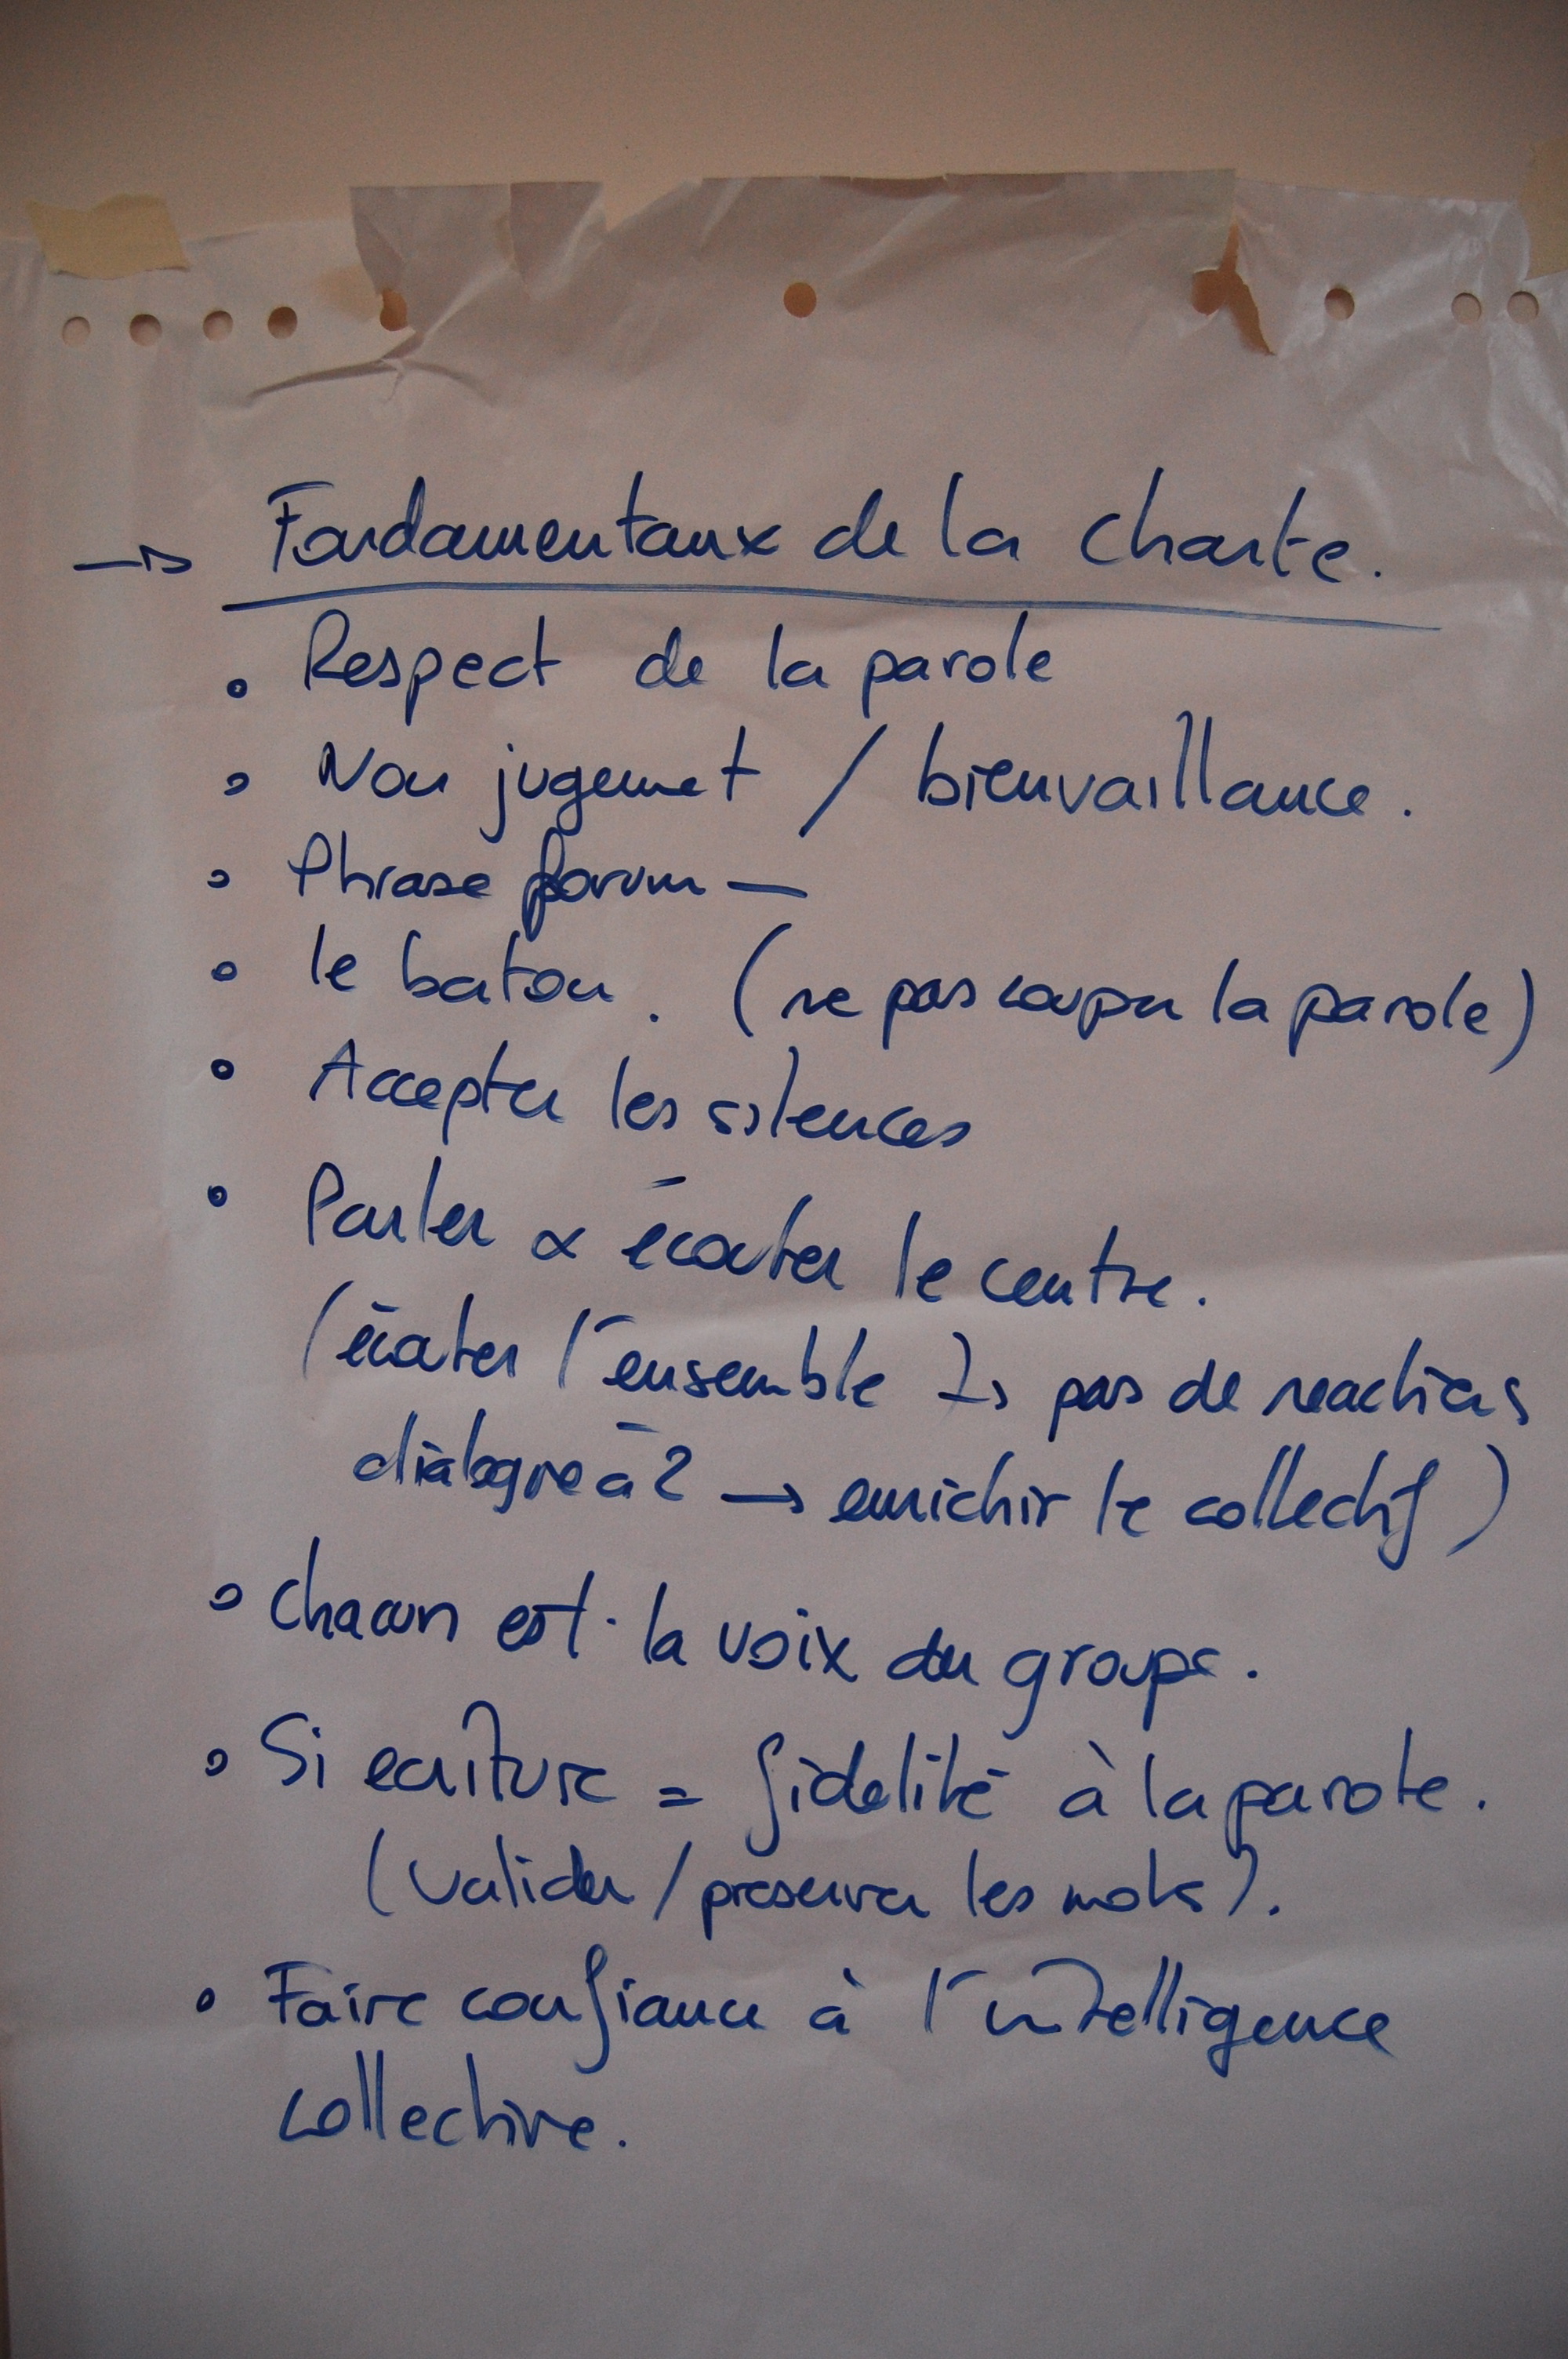 → Fondamentaux de la charte.
• Respect de la parole
• Non jugement / bienvaillance.
• Phrase forum —
• le baton. (ne pas couper la parole)
• Accepter les silences
• Parler & écouter le centre.
(écouter l'ensemble → pas de reactions
dialogue à 2 → enrichir le collectif)
• Chacun est la voix du groupe.
• Si ecriture = fidelité à la parole.
(valider / preserver les mots).
• Faire confiance à l'intelligence
collective.